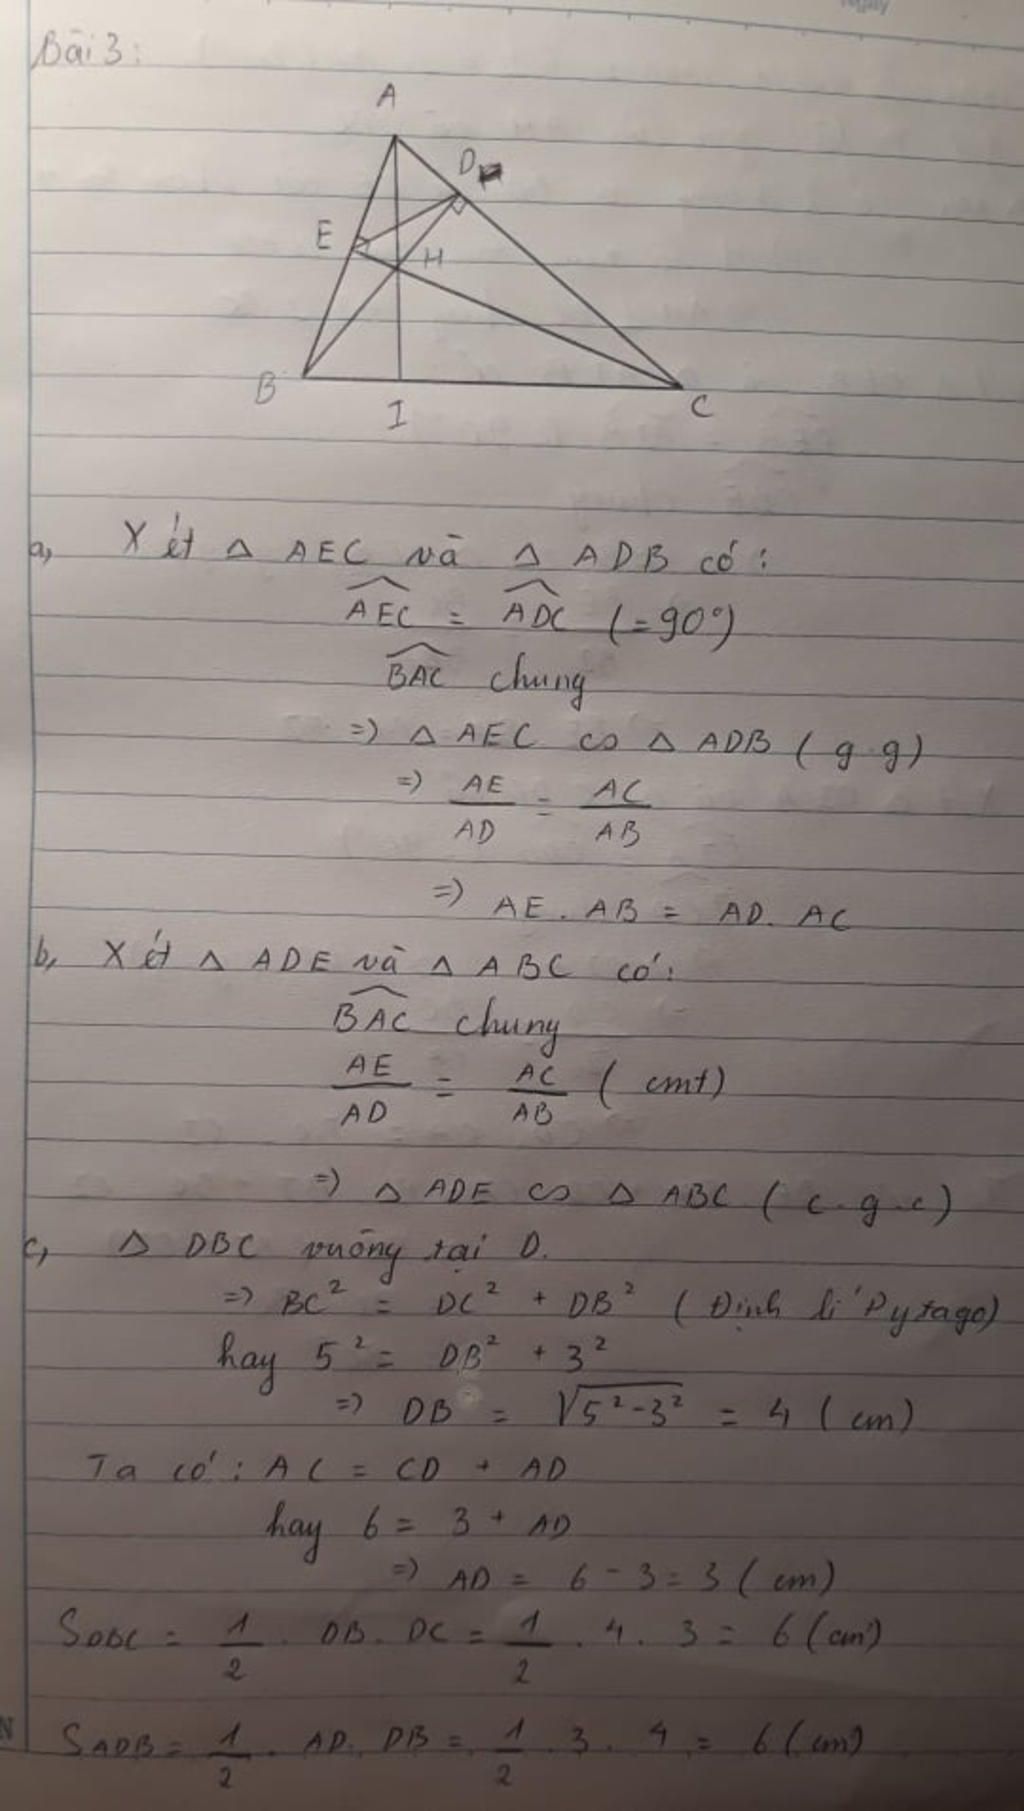 Bài 3:
A
D
E
H
B
I
C
a, Xét Δ AEC và Δ ADB có:
AEC = ADC (=90°)
BAC chung
=) Δ AEC ∽ Δ ADB (g.g)
=) AE/AD = AC/AB
=) AE . AB = AD. AC
b, Xét Δ ADE và Δ ABC có:
BAC chung
AE/AD = AC/AB (cmt)
=) Δ ADE ∽ Δ ABC (c.g.c)
c, Δ DBC vuông tại D.
=) BC² = DC² + DB² (Định lí Pytago)
hay 5² = DB² + 3²
=) DB = √5²-3² = 4 (cm)
Ta có: AC = CD + AD
hay 6 = 3 + AD
=) AD = 6 - 3 = 3 (cm)
SDBC = 1/2 . DB. DC = 1/2 . 4 . 3 = 6 (cm²)
SADB = 1/2 . AD. DB = 1/2 . 3 . 4 = 6 (cm²)